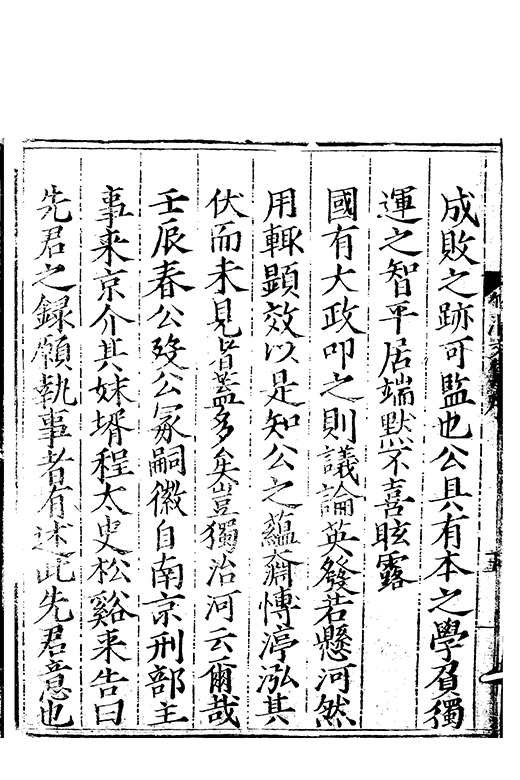 成敗之跡可監也公具有本之學負獨
運之智平居端默不喜眩露
國有大政叩之則議論英發若懸河然
用輙顕效以是知公之蘊淵愽渟泓其
伏而未見者蓋多矣豈獨治河云爾哉
壬辰春公歿公冢嗣徽自南京刑部主
事来京介其妹壻程太史松谿来告曰
先君之録願執事者有述此先君意也